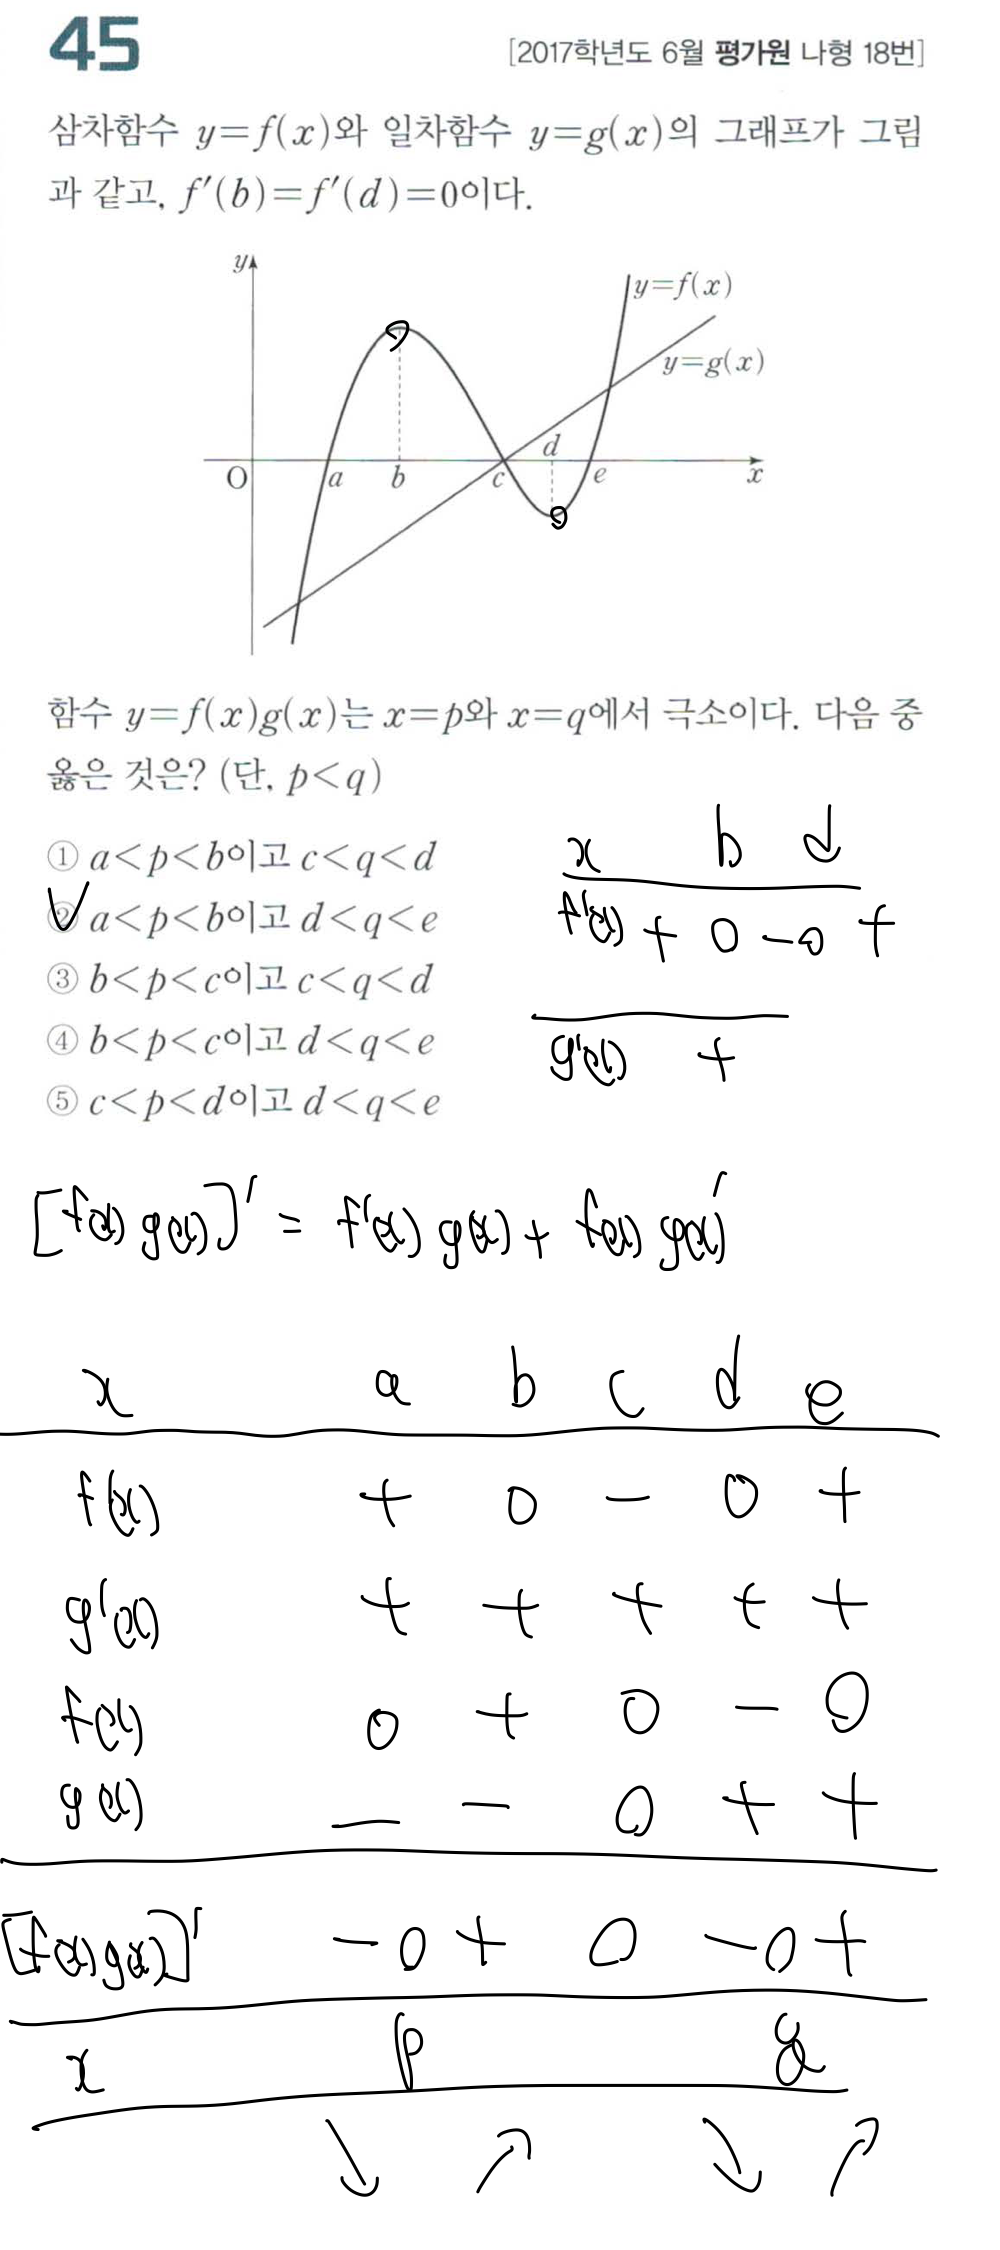 45
[2017학년도 6월 평가원 나형 18번]
삼차함수 y=f(x)와 일차함수 y=g(x)의 그래프가 그림
과 같고, f′(b)=f′(d)=0이다.
y
y=f(x)
y=g(x)
d
O a b c e x
함수 y=f(x)g(x)는 x=p와 x=q에서 극소이다. 다음 중
옳은 것은? (단, p<q)
① a<p<b이고 c<q<d
② a<p<b이고 d<q<e
③ b<p<c이고 c<q<d
④ b<p<c이고 d<q<e
⑤ c<p<d이고 d<q<e
x b d
f'(x) + 0 - 0 +
g'(x) +
[f(x) g(x)]' = f'(x) g(x) + f(x) g(x)'
x a b c d e
f'(x) + 0 - 0 +
g'(x) + + + + +
f(x) 0 + 0 - 0
g(x) - - 0 + +
[f(x)g(x)]' - 0 + 0 - 0 +
x p q
↘ ↗ ↘ ↗